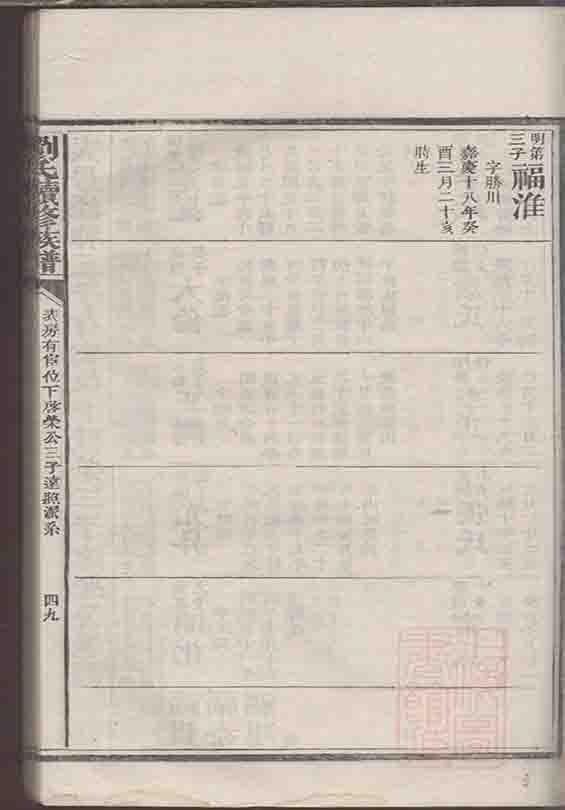 明第三子
福淮
字勝川
嘉慶十八年癸
酉三月二十亥
時生
劉氏續修族譜
房有
位下啓榮公三子達照派系
四九